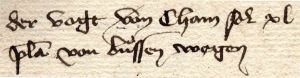 der vogt von Cham sol xl
plā von düssen wegen